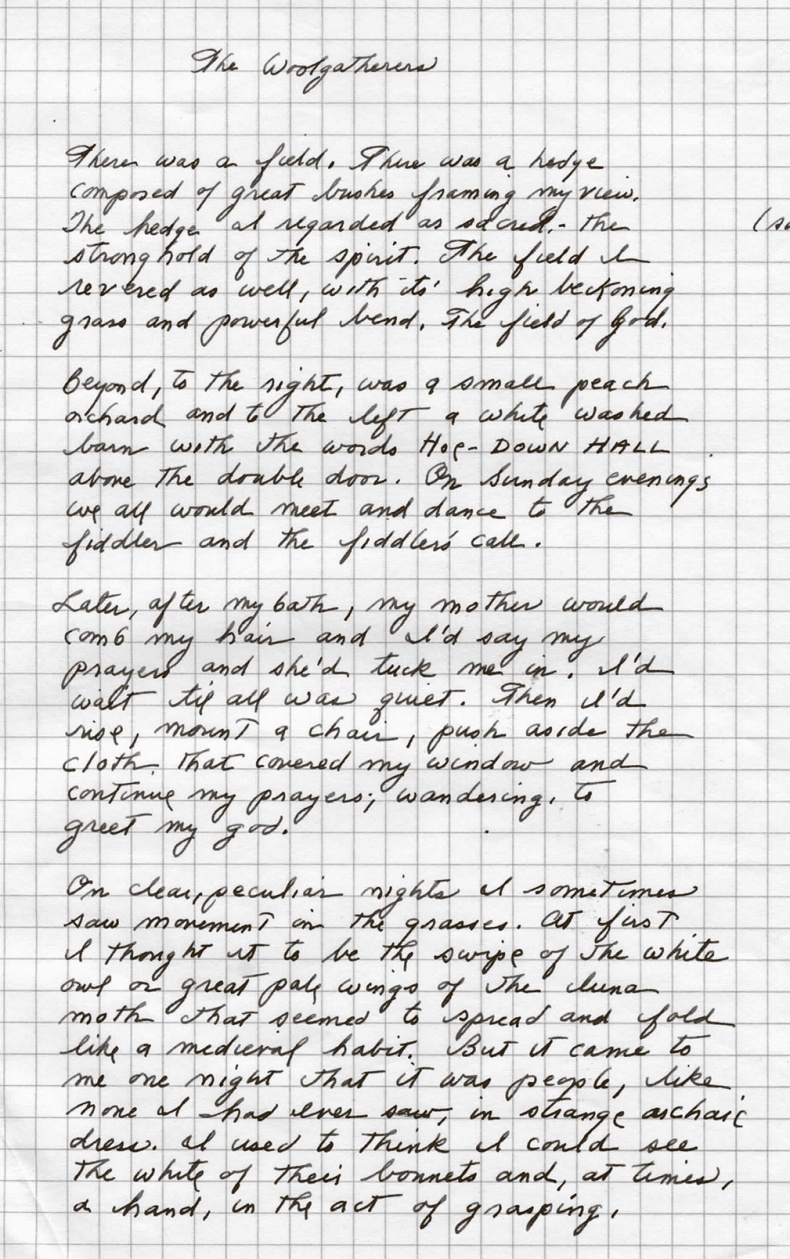 The Woolgatherers
There was a field. There was a hedge
composed of great bushes framing my view.
The hedge I regarded as sacred.- the
stronghold of the spirit. The field I
revered as well, with its' high beckoning
grass and powerful bend. The field of God.
Beyond, to the right, was a small peach
orchard and to the left a white washed
barn with the words HOE-DOWN HALL
above the double door. On Sunday evenings
we all would meet and dance to the
fiddler and the fiddler's call.
Later, after my bath, my mother would
comb my hair and I'd say my
prayers and she'd tuck me in. I'd
wait til all was quiet. Then I'd
rise, mount a chair, push aside the
cloth that covered my window and
continue my prayers; wandering, to
greet my god.
On clear, peculiar nights I sometimes
saw movement in the grasses. At first
I thought it to be the swipe of the white
owl or great pale wings of the luna
moth that seemed to spread and fold
like a medieval habit. But it came to
me one night that it was people, like
none I had ever saw, in strange archaic
dress. I used to think I could see
the white of their bonnets and, at times,
a hand, in the act of grasping.